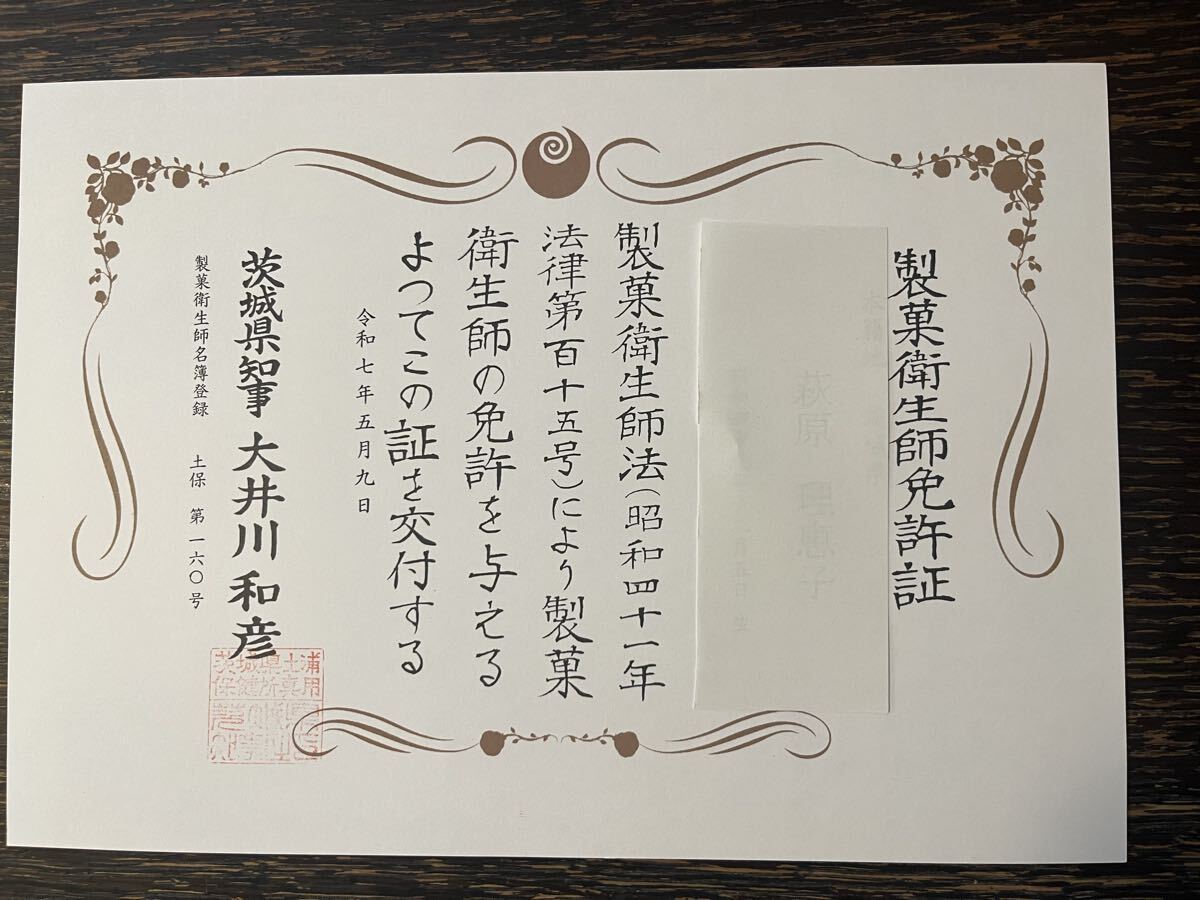 製菓衛生師免許証
製菓衛生師法(昭和四十一年
法律第百十五号)により製菓
衛生師の免許を与える
よつてこの証を交付する
令和七年五月九日
茨城県知事 大井川 和彦
製菓衛生師名簿登録 土保 第一六〇号
茨城県土浦
保健所専用